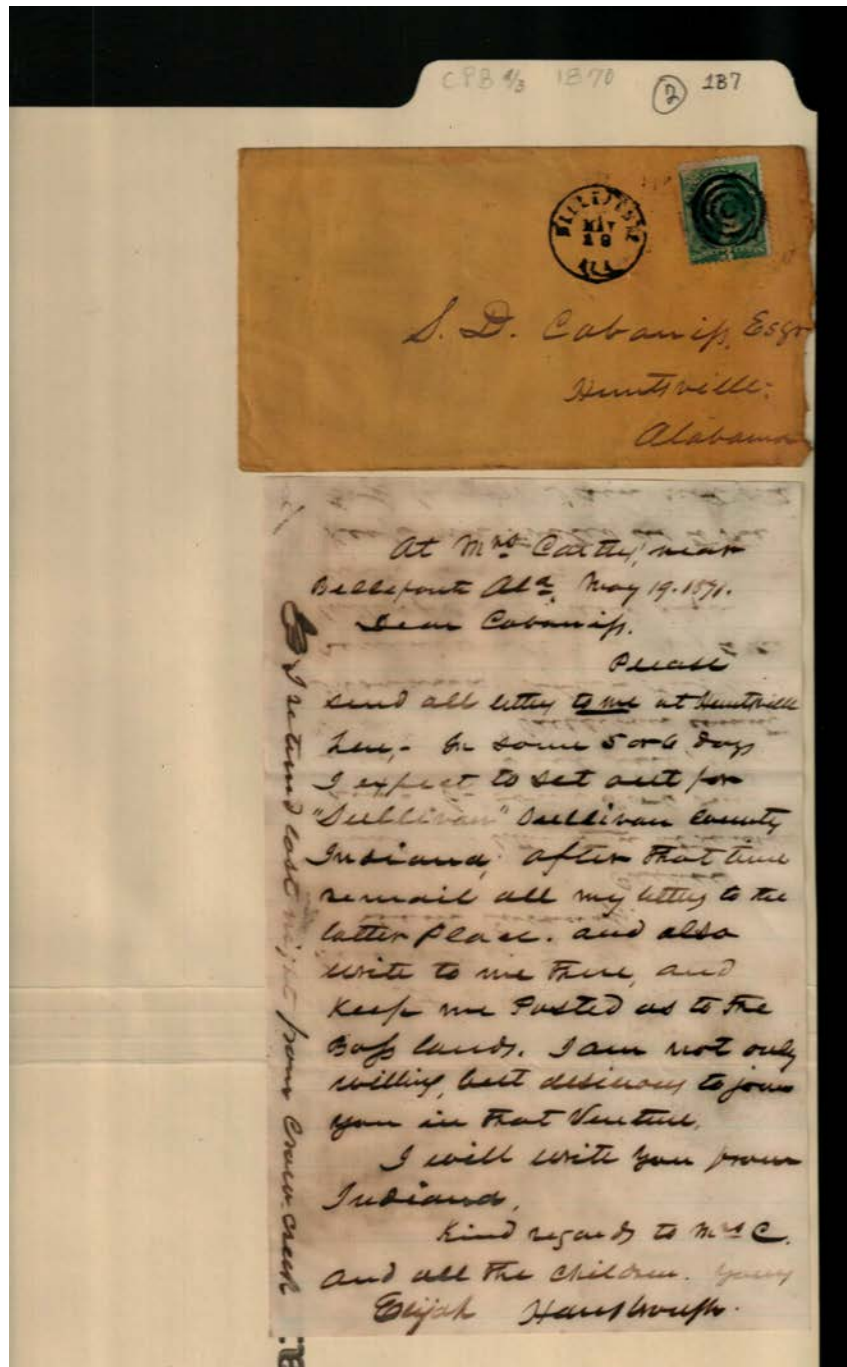 CPB 4/3 1870 (2) 187
BELLEFONTE
MAY
19
ALA
S. D. Cabaniss, Esqr
Huntsville,
Alabama
At Mrs. near
Bellefonte Ala, May 19. 1871.
Dear Cabaniss.
Please
send all letters to me at Huntsville
here,- In some 5 or 6 days
I expect to set out for
"Sullivan" Sullivan County
Indiana, after that time
remail all my letters to the
latter place. and also
write to me there, and
keep me Posted as to the
Bass lands. I am not only
willing, but desirous to join
you in that Venture.
I will write you from
Indiana,
Kind regards to Mrs C.
and all the children. Yours
Elijah
I returned last night from Crow-creek